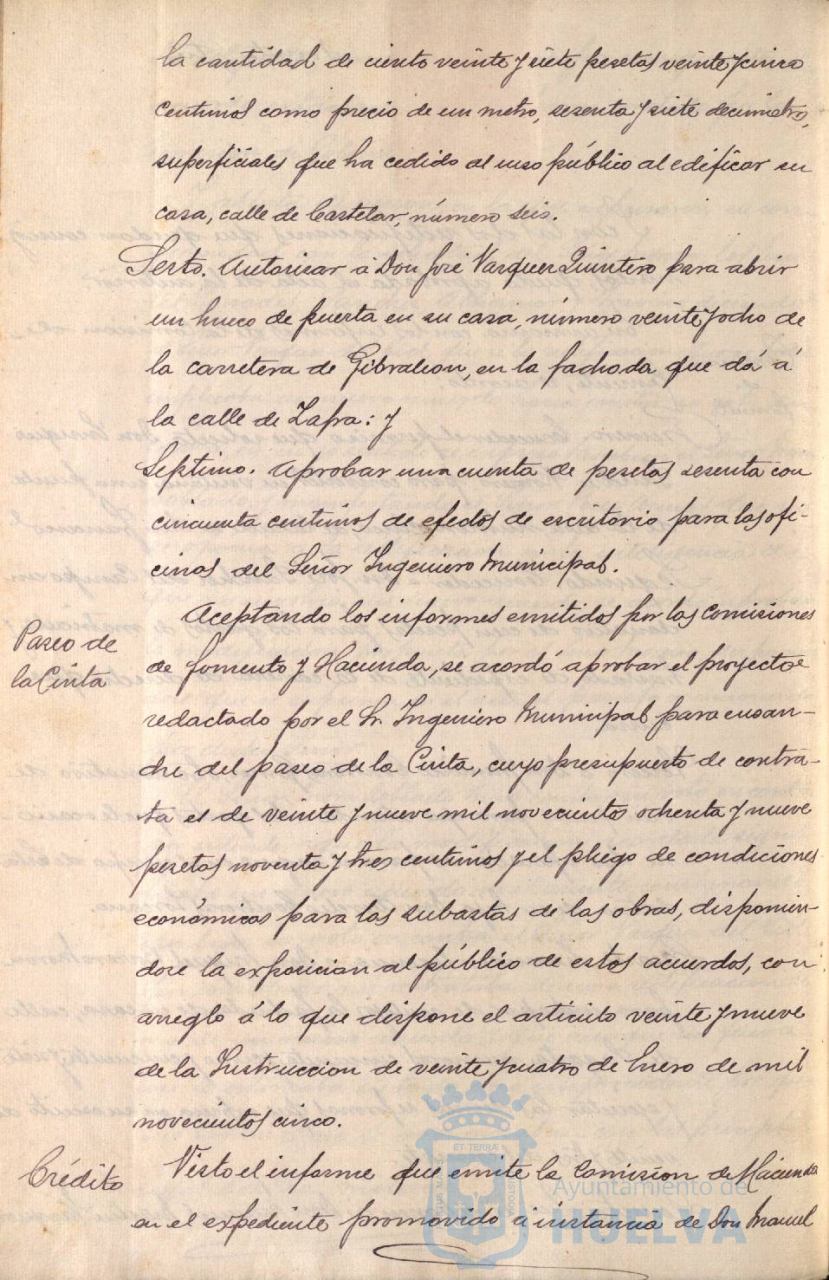 la cantidad de ciento veinte y siete pesetas veinte y cinco
centimos como precio de un metro, sesenta y siete decimetros,
superficiales que ha cedido al uso público al edificar su
casa, calle de Castelar, número seis.
Sexto. Autorizar á Don José Vazquez Quintero para abrir
un hueco de puerta en su casa, número veinte y ocho de
la carretera de Gibraleon, en la fachada que dá á
la calle de Zafra: y
Septimo. Aprobar una cuenta de pesetas sesenta con
cincuenta centimos de efectos de escritorio para las ofi-
cinas del Señor Ingeniero Municipal.
Paseo de
la Cinta
Aceptando los informes emitidos por las comisiones
de fomento y Hacienda, se acordó aprobar el proyecto
redactado por el Sr. Ingeniero Municipal para ensan-
che del paseo de la Cinta, cuyo presupuesto de contra-
ta es de veinte y nueve mil novecientos ochenta y nueve
pesetas noventa y tres centimos y el pliego de condiciones
económicas para las subastas de las obras, disponien-
dose la exposicion al público de estos acuerdos, con
arreglo á lo que dispone el artículo veinte y nueve
de la Instruccion de veinte y cuatro de Enero de mil
novecientos cinco.
Crédito
Visto el informe que emite la Comision de Hacienda
en el expediente promovido á instancia de Don Manuel
Ayuntamiento de
HUELVA